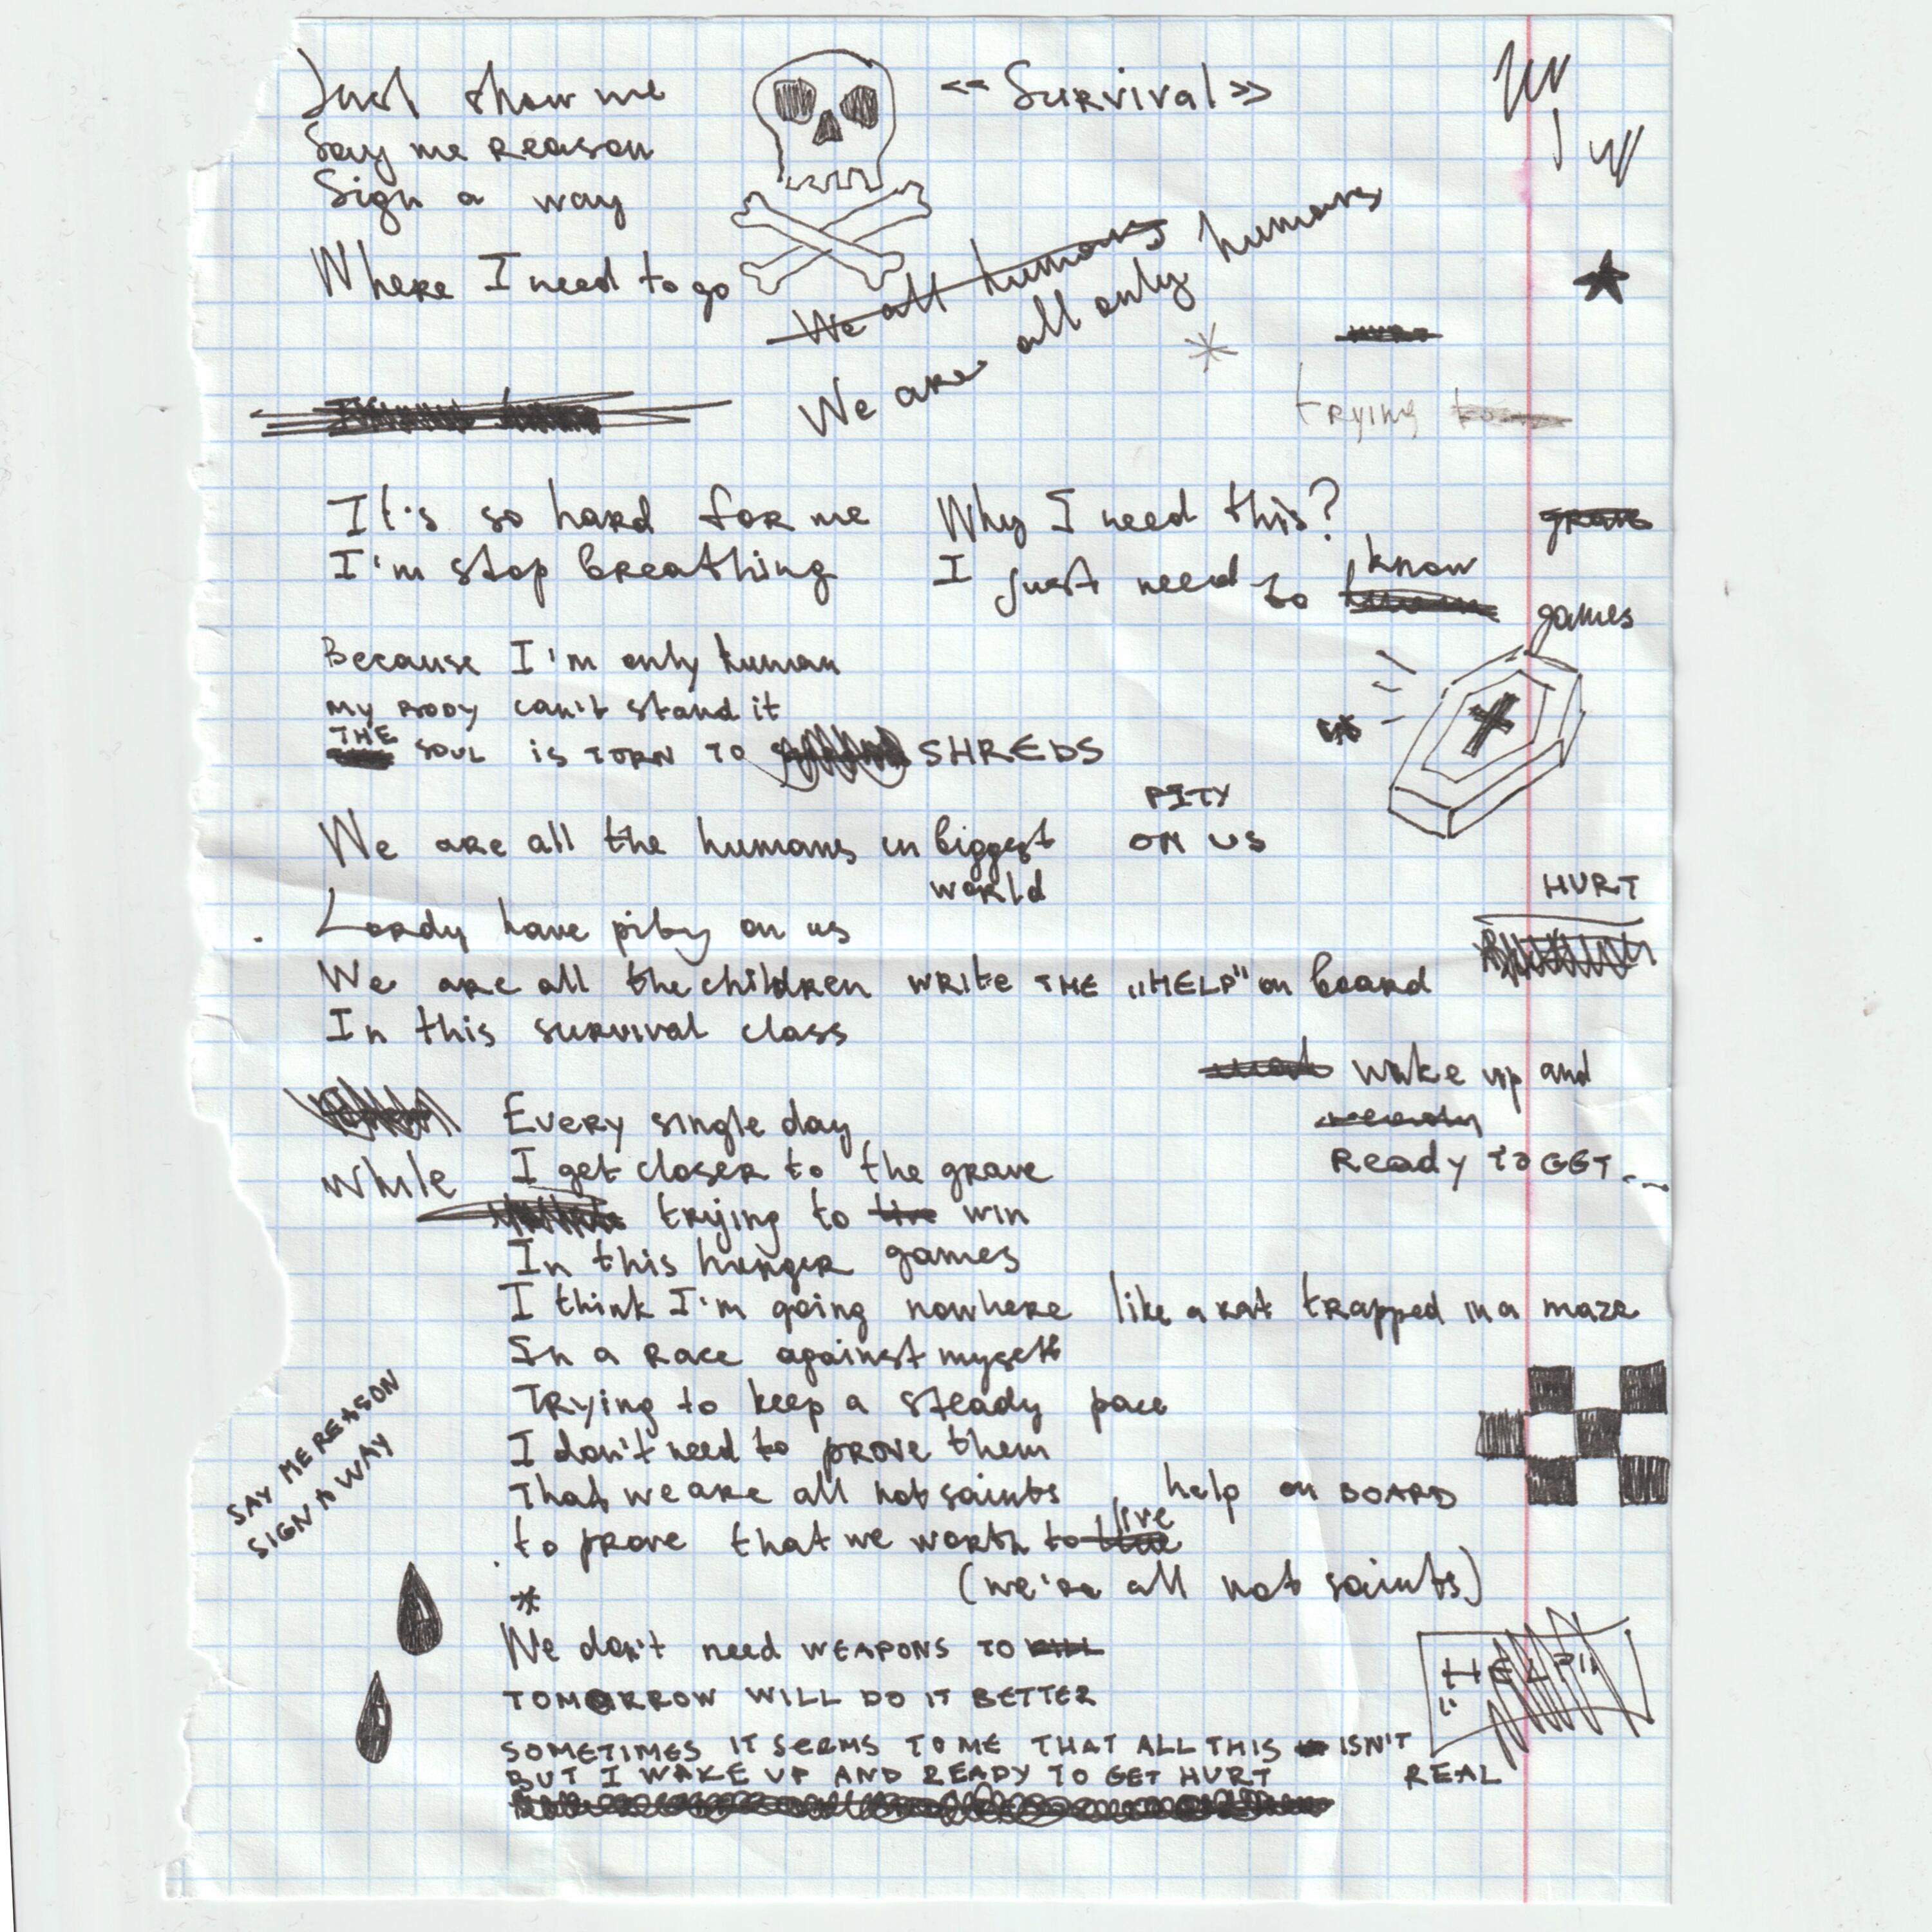 Just show me
<< Survival >>
Say me reason
Sign a way
Where I need to go
We all humans
We are all only humans
*
trying to
It's so hard for me
Why I need this?
I'm stop breathing
I just need to know
grave
games
Because I'm only human
my BODY can't stand it
THE SOUL is TORN TO SHREDS
PITY
ON US
We are all the humans in biggest
world
HURT
Lordy have pity on us
We are all the children write THE „HELP" on board
In this survival class
wake up and
ready
Ready TO GET...
Every single day
While I get closer to the grave
trying to live win
In this hunger games
I think I'm going nowhere like a rat trapped in a maze
In a race against myself
Trying to keep a steady pace
I don't need to prove them
That we are all not saints
help on BOARD
to prove that we worth to live
live
(we're all not saints)
SAY ME REASON
SIGN A WAY
*
We don't need WEAPONS TO KILL
TOMORROW WILL DO IT BETTER
SOMETIMES IT SEEMS TO ME THAT ALL THIS ISN'T
REAL
BUT I WAKE UP AND READY TO GET HURT
„HELP"